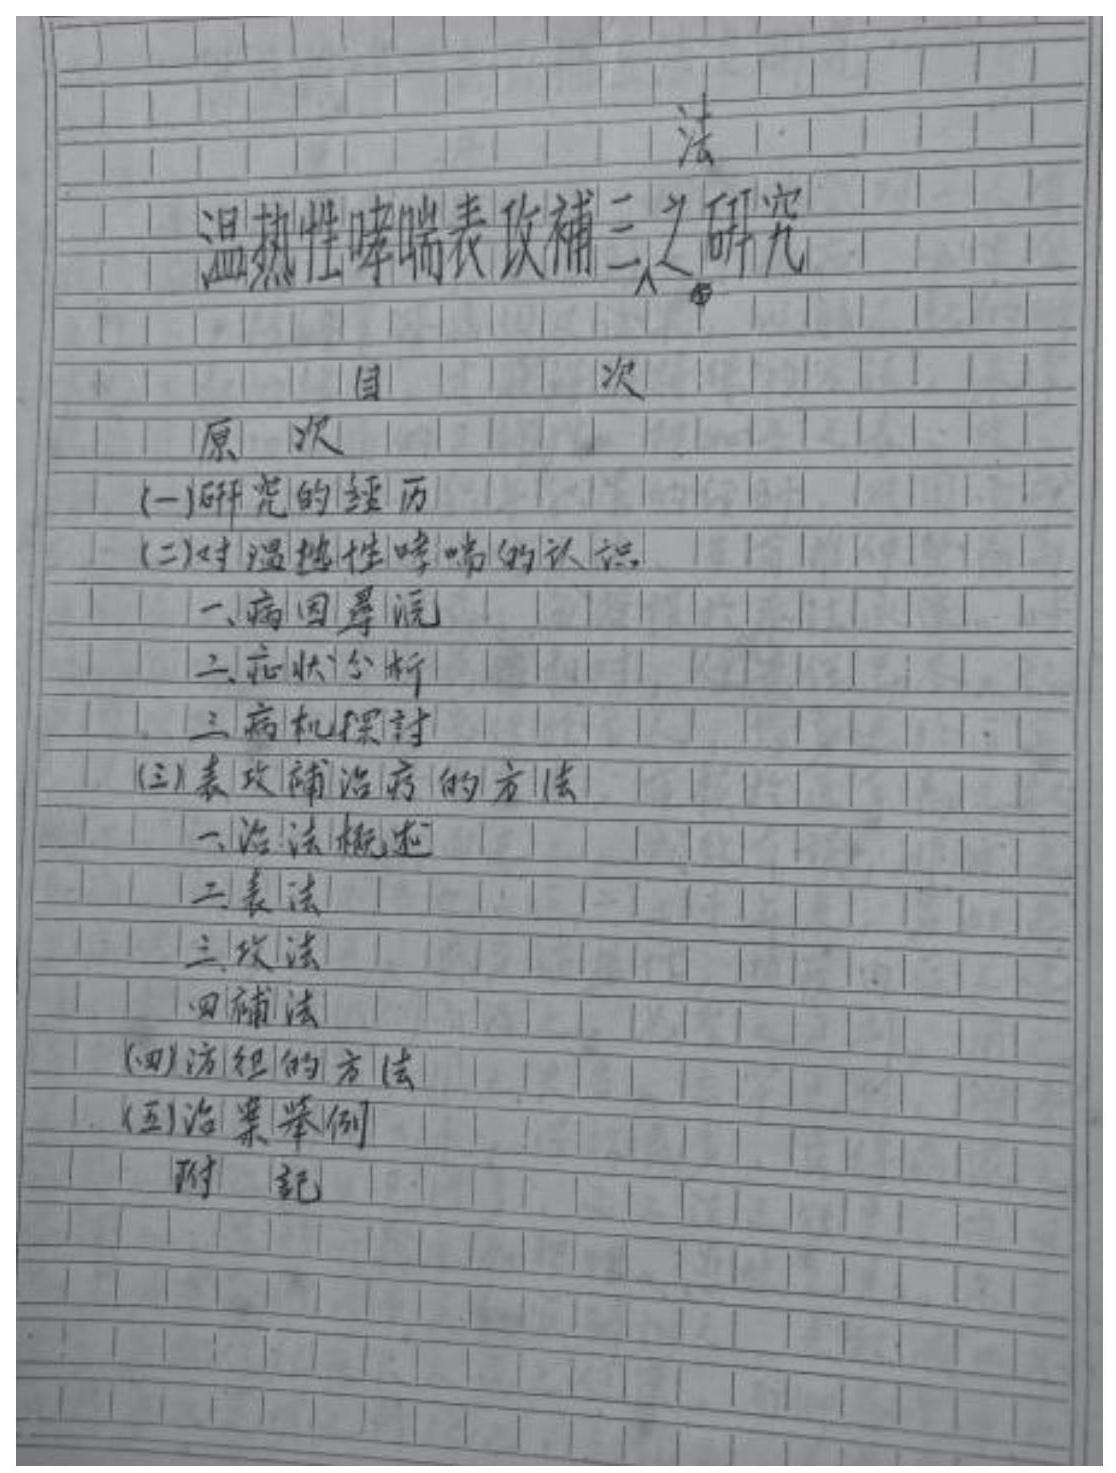 温热性哮喘表攻補三法之研究
目 次
原 次
(一)研究的经历
(二)对温热性哮喘的认识
一、病因尋源
二、症状分析
三、病机探討
(三)表攻補治疗的方法
一、治法概述
二、表法
三、攻法
四補法
(四)防的方法
(五)治案举例
附 記